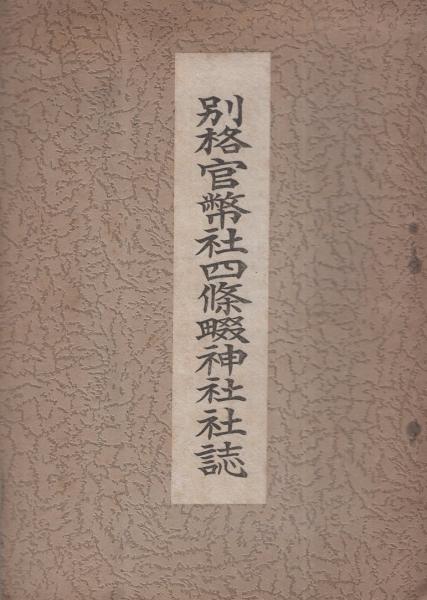 別格官幣社四條畷神社社誌